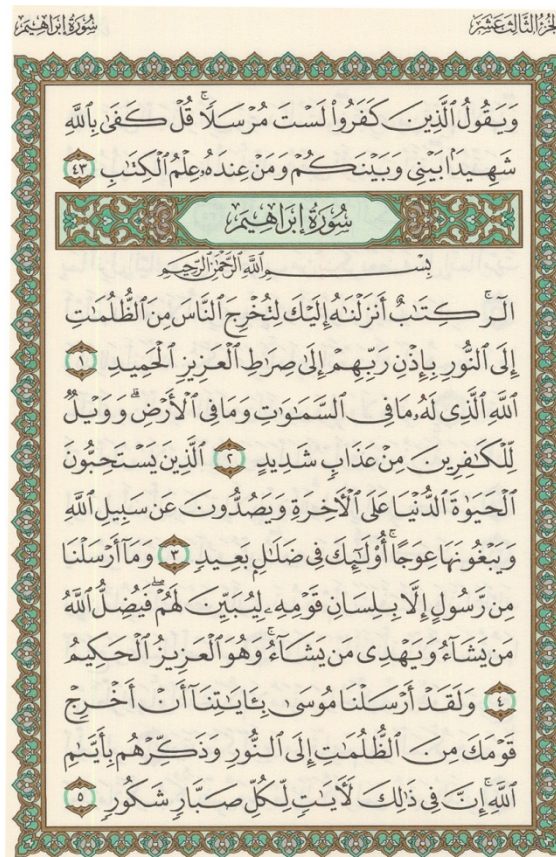 الجزء الثالث عشر
سورة إبراهيم
وَيَقُولُ ٱلَّذِينَ كَفَرُوا۟ لَسْتَ مُرْسَلًا ۚ قُلْ كَفَىٰ بِٱللَّهِ
شَهِيدًۢا بَيْنِى وَبَيْنَكُمْ وَمَنْ عِندَهُۥ عِلْمُ ٱلْكِتَـٰبِ ٤٣
سُورَةُ إِبْرَاهِيمَ
بِسْمِ ٱللَّهِ ٱلرَّحْمَـٰنِ ٱلرَّحِيمِ
الٓر ۚ كِتَـٰبٌ أَنزَلْنَـٰهُ إِلَيْكَ لِتُخْرِجَ ٱلنَّاسَ مِنَ ٱلظُّلُمَـٰتِ
إِلَى ٱلنُّورِ بِإِذْنِ رَبِّهِمْ إِلَىٰ صِرَٰطِ ٱلْعَزِيزِ ٱلْحَمِيدِ ١
ٱللَّهِ ٱلَّذِى لَهُۥ مَا فِى ٱلسَّمَـٰوَٰتِ وَمَا فِى ٱلْأَرْضِ ۗ وَوَيْلٌ
لِّلْكَـٰفِرِينَ مِنْ عَذَابٍ شَدِيدٍ ٢ ٱلَّذِينَ يَسْتَحِبُّونَ
ٱلْحَيَوٰةَ ٱلدُّنْيَا عَلَى ٱلْـَٔاخِرَةِ وَيَصُدُّونَ عَن سَبِيلِ ٱللَّهِ
وَيَبْغُونَهَا عِوَجًا ۚ أُو۟لَـٰٓئِكَ فِى ضَلَـٰلٍۭ بَعِيدٍ ٣ وَمَآ أَرْسَلْنَا
مِن رَّسُولٍ إِلَّا بِلِسَانِ قَوْمِهِۦ لِيُبَيِّنَ لَهُمْ ۖ فَيُضِلُّ ٱللَّهُ
مَن يَشَآءُ وَيَهْدِى مَن يَشَآءُ ۚ وَهُوَ ٱلْعَزِيزُ ٱلْحَكِيمُ
٤ وَلَقَدْ أَرْسَلْنَا مُوسَىٰ بِـَٔايَـٰتِنَآ أَنْ أَخْرِجْ
قَوْمَكَ مِنَ ٱلظُّلُمَـٰتِ إِلَى ٱلنُّورِ وَذَكِّرْهُم بِأَيَّىٰمِ
ٱللَّهِ ۚ إِنَّ فِى ذَٰلِكَ لَـَٔايَـٰتٍ لِّكُلِّ صَبَّارٍ شَكُورٍ ٥